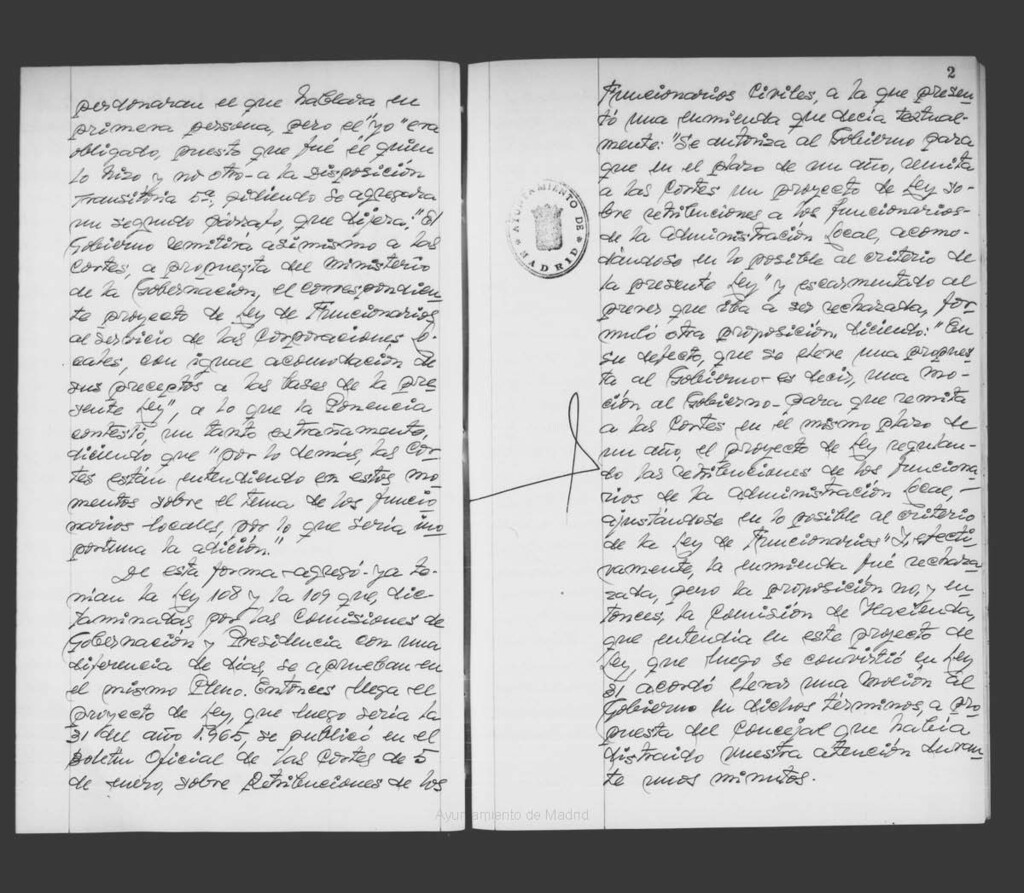 perdonaran el que hablara en
primera persona, pero el "yo" era
obligado, puesto que fué él quien
lo hizo y no otro - a la Disposición
Transitoria 5ª, pidiendo se agregara
un segundo párrafo, que dijera: "El
Gobierno remitirá asimismo a las
Cortes, a propuesta del Ministerio
de la Gobernación, el correspondien
te proyecto de Ley de Funcionarios
al servicio de las Corporaciones Lo
cales, con igual acomodación de
sus preceptos a las bases de la pre
sente Ley", a lo que la Ponencia
contestó, un tanto extrañamente,
diciendo que "por lo demás, las Cor
tes están entendiendo en estos mo
mentos sobre el tema de los funcio
narios locales, por lo que sería ino
portuna la adición."
De esta forma - agregó - ya to-
man la Ley 108 y la 109 que, dic-
taminadas por las Comisiones de
Gobernación y Presidencia con una
diferencia de días, se aprueban en
el mismo Pleno. Entonces llega el
proyecto de Ley, que luego sería la
31 del año 1.965, se publicó en el
Boletín Oficial de las Cortes de 5
de enero, sobre Retribuciones de los
2
Funcionarios Civiles, a la que presen
tó una enmienda que decía textual-
mente: "Se autoriza al Gobierno para
que en el plazo de un año, remita
a las Cortes un proyecto de Ley so-
bre retribuciones a los funcionarios-
de la Administración Local, acomo-
dándose en lo posible al criterio de
la presente Ley" y escarmentado al
prever que iba a ser rechazada, for
muló otra proposición diciendo: "En
su defecto, que se eleve una propues
ta al Gobierno - es decir, una mo-
ción al Gobierno - para que remita
a las Cortes en el mismo plazo de
un año, el proyecto de Ley regulan-
do las retribuciones de los funciona
rios de la Administración Local, -
ajustándose en lo posible al criterio
de la Ley de Funcionarios" Y, efecti
vamente, la enmienda fué rechaza
zada, pero la proposición no, y en-
tonces, la Comisión de Hacienda,
que entendía en este proyecto de
Ley, que luego se convirtió en Ley
31 acordó elevar una moción al
Gobierno en dichos términos, a pro
puesta del Concejal que había
distraido nuestra atención duran-
te unos minutos.
AYUNTAMIENTO DE MADRID
Ayuntamiento de Madrid